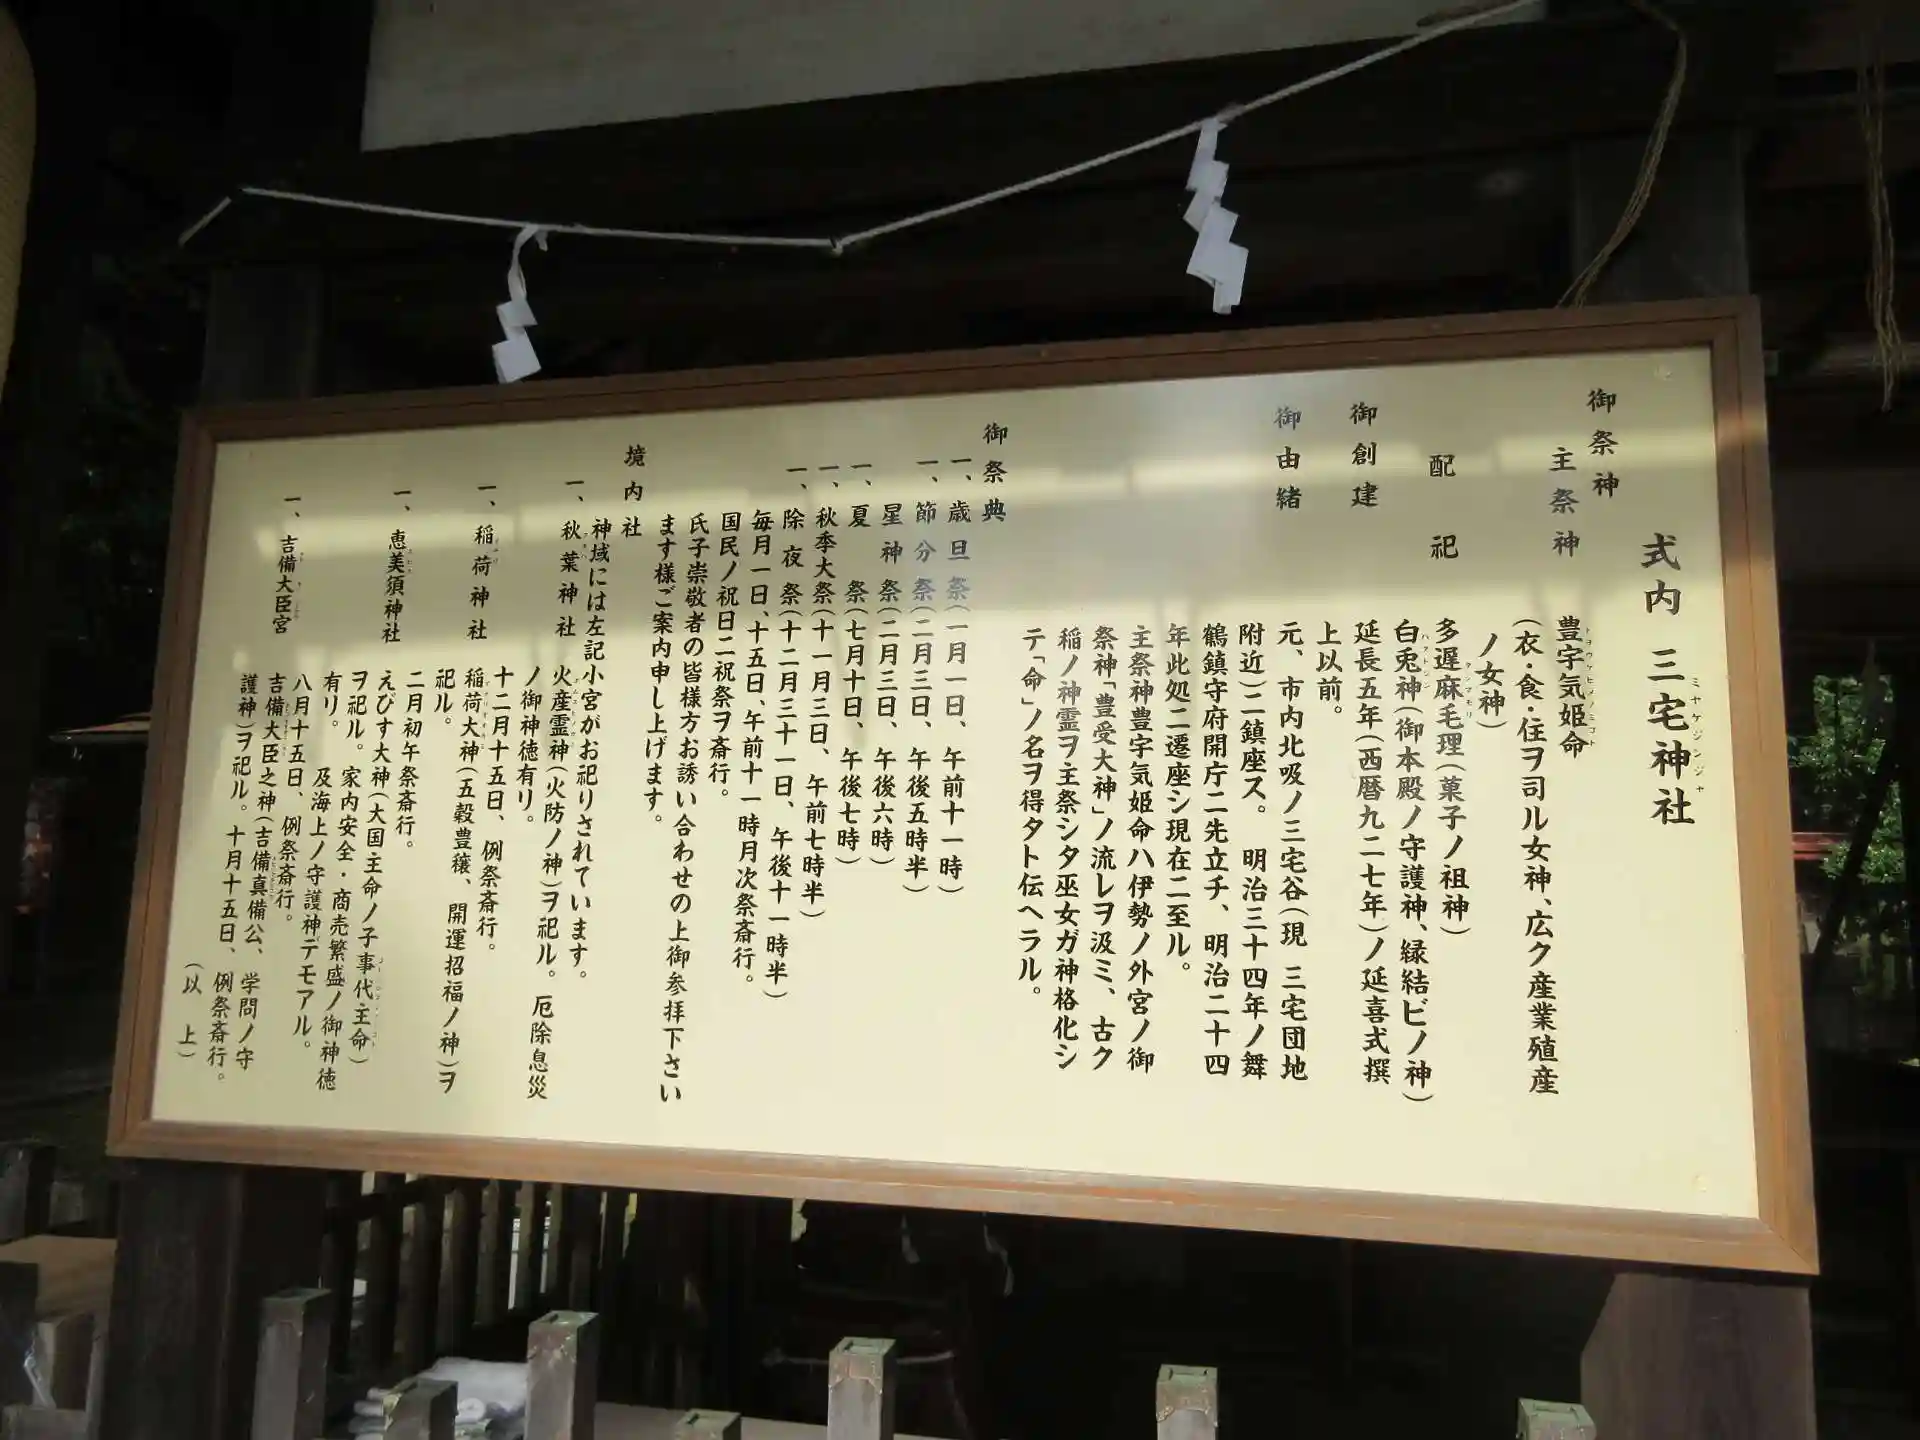 式内 三宅神社
ミヤケジンジャ
御祭神
主祭神 豊宇気姫命
トヨウケヒメノミコト
(衣・食・住ヲ司ル女神、広ク産業殖産
ノ女神)
配祀 多遅麻毛理(菓子ノ祖神)
タジマモリ
白兎神(御本殿ノ守護神、縁結ビノ神)
ハクトシン
御創建 延長五年(西暦九二七年)ノ延喜式撰
上以前。
御由緒 元、市内北吸ノ三宅谷(現 三宅団地
附近)ニ鎮座ス。 明治三十四年ノ舞
鶴鎮守府開庁ニ先立チ、明治二十四
年此処ニ遷座シ現在ニ至ル。
主祭神豊宇気姫命ハ伊勢ノ外宮ノ御
祭神「豊受大神」ノ流レヲ汲ミ、古ク
稲ノ神霊ヲ主祭シタ巫女ガ神格化シ
テ「命」ノ名ヲ得タト伝ヘラル。
御祭典
一、歳旦祭(一月一日、午前十一時)
一、節分祭(二月三日、午後五時半)
星神祭(二月三日、午後六時)
一、夏 祭(七月十日、午後七時)
一、秋季大祭(十一月三日、午前七時半)
一、除夜祭(十二月三十一日、午後十一時半)
毎月一日、十五日、午前十一時月次祭斎行。
国民ノ祝日ニ祝祭ヲ斎行。
氏子崇敬者の皆様方お誘い合わせの上御参拝下さい
ます様ご案内申し上げます。
境内社
神域には左記小宮がお祀りされています。
一、秋葉神社 火産霊神(火防ノ神)ヲ祀ル。厄除息災
ノ御神徳有リ。
十二月十五日、例祭斎行。
一、稲荷神社 稲荷大神(五穀豊穣、開運招福ノ神)ヲ
祀ル。
二月初午祭斎行。
一、恵美須神社 えびす大神(大国主命ノ子事代主命)
ヲ祀ル。 家内安全・商売繁盛ノ御神徳
有リ。 及海上ノ守護神デモアル。
八月十五日、例祭斎行。
一、吉備大臣宮 吉備大臣之神(吉備真備公、学問ノ守
護神)ヲ祀ル。十月十五日、例祭斎行。
(以 上)